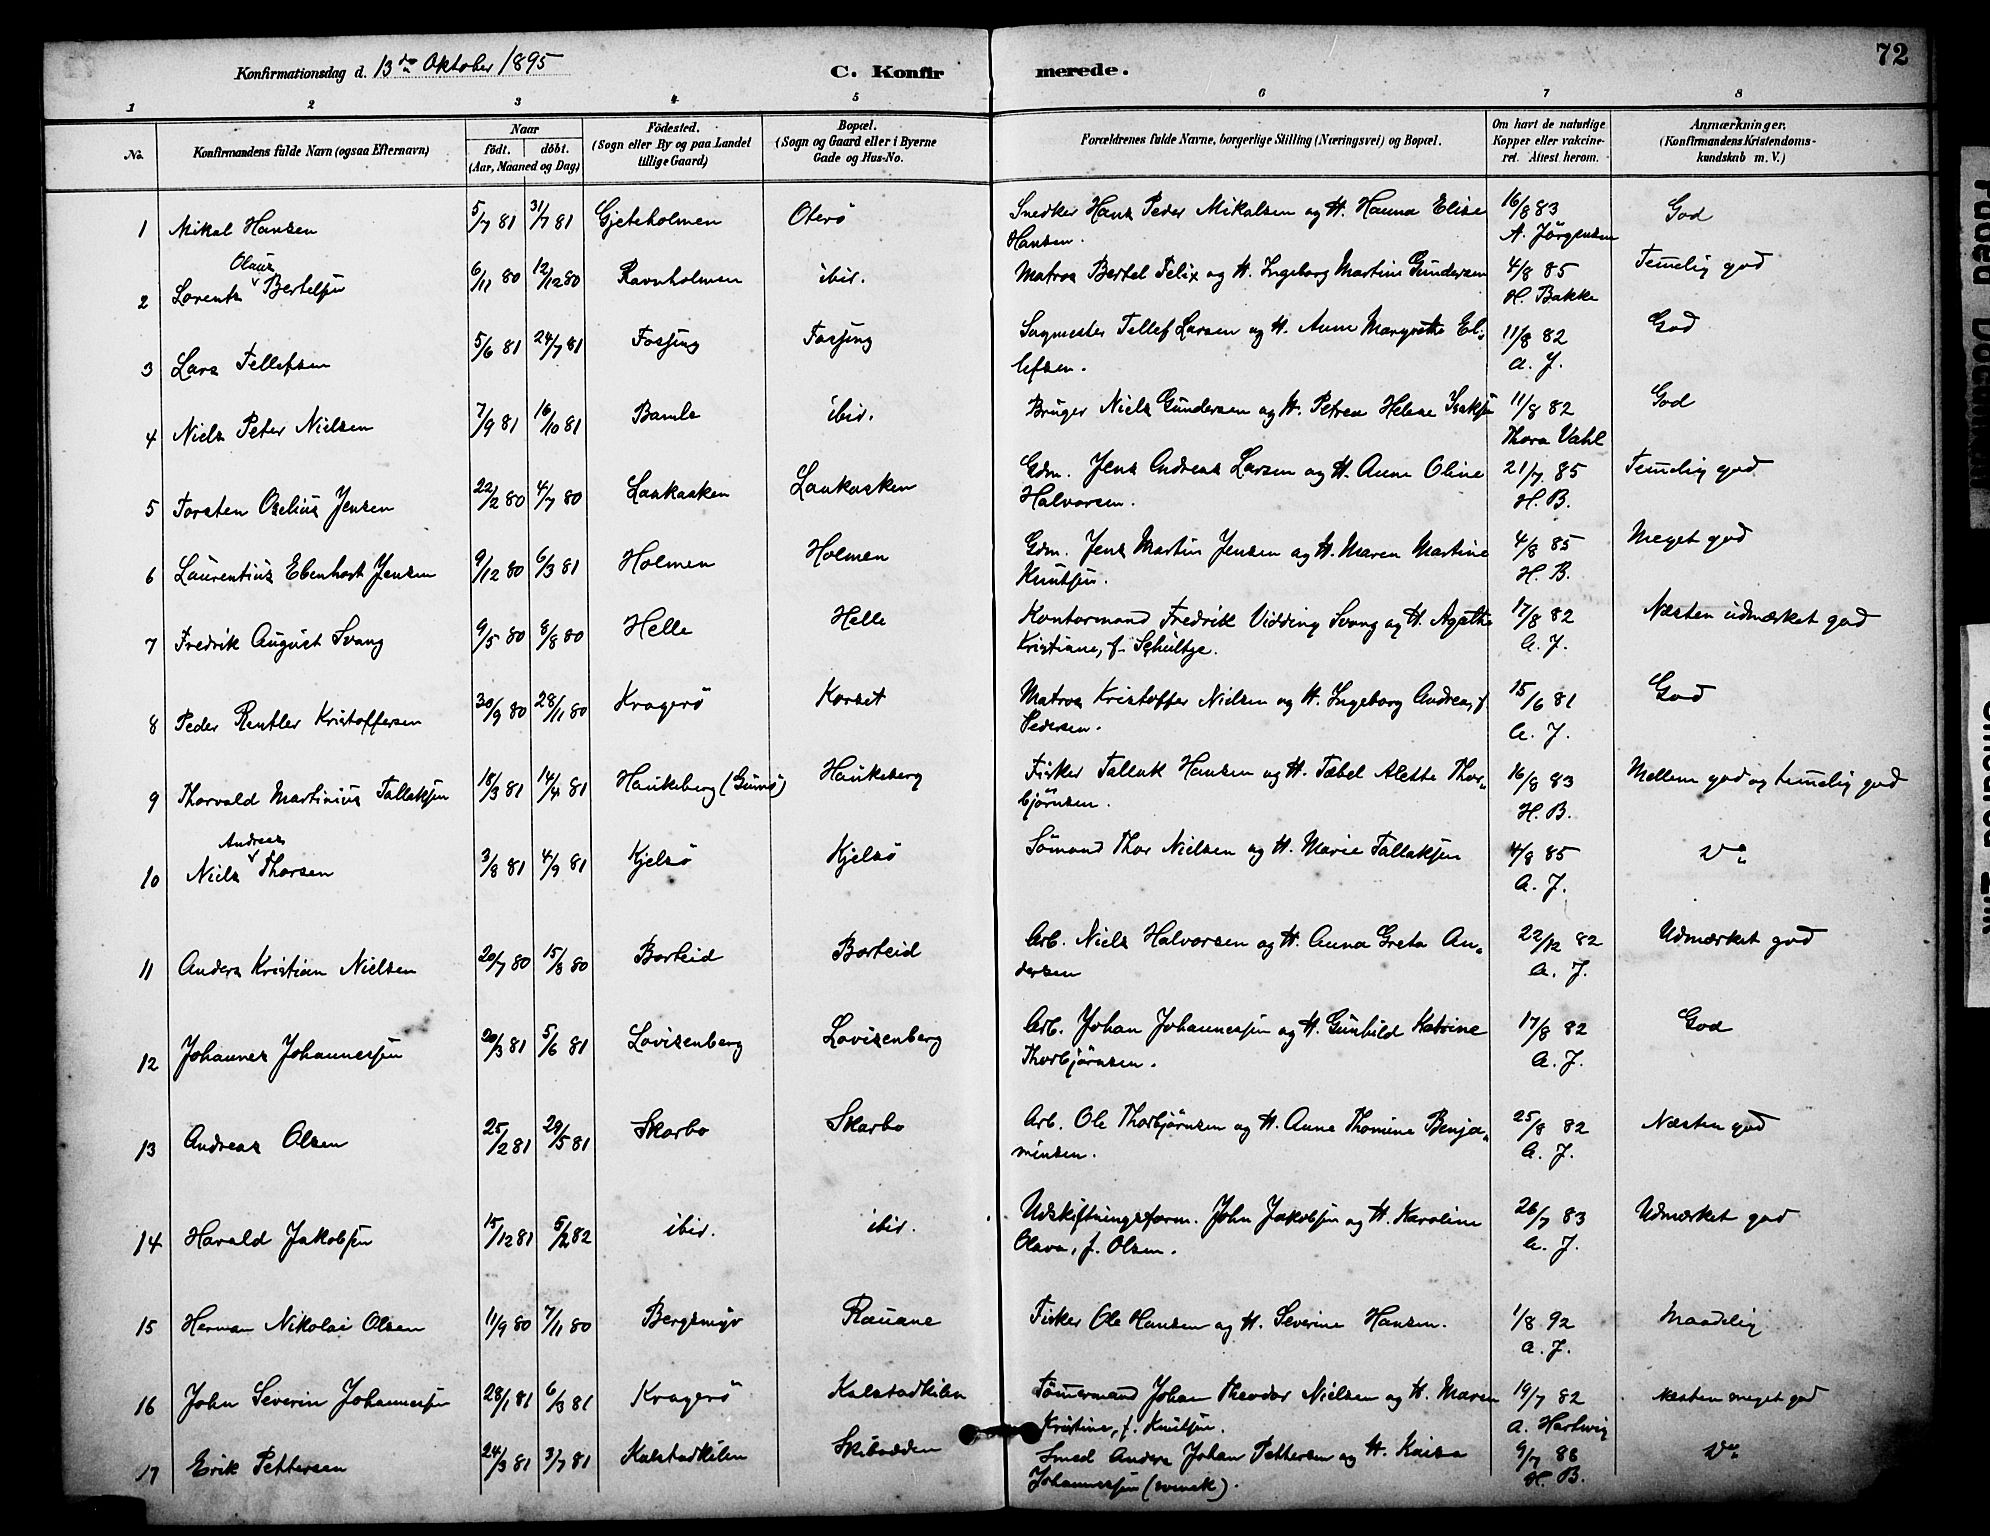 Konfirmationsdag d. 13de Oktober 1895
C. Konfirmerede.
72
1 2 3 4 5 6 7 8
No.
Konfirmandens fulde Navn (ogsaa Efternavn)
Naar
født. døbt.
(Aar, Maaned og Dag)
Fødested.
(Sogn eller By og paa Landet
tillige Gaard)
Bopæl.
(Sogn og Gaard eller i Byerne
Gade og Hus-No.
Forældrenes fulde Navne, borgerlige Stilling (Næringsvei) og Bopæl.
Om havt de naturlige
Kopper eller vakcine-
ret. Attest herom.
Anmærkninger.
(Konfirmandens Kristendoms-
kundskab m. V.)
1 Mikal Hansen 5/7 81 31/7 81 Gjeteholmen Oterø Snedker Hans Peder Mikalsen og H. Hanna Elise 16/8 83 God
Hansen. A. Jörgensen
Olaus
2 Lorents Bertelsen 6/11 80 12/12 80 Ravnholmen ibid. Matros Bertel Felix og H. Ingeborg Martine Gundersen 4/8 85 Temelig god
H. Bakke
3 Lars Tellefsen 5/6 81 24/7 81 Fossing Fossing Sagmester Tellef Larsen og H. Anne Margrethe El- 11/8 82 God
lefsen. A. J.
4 Niels Peter Nielsen 7/9 81 16/10 81 Bamle ibid. Bruger Niels Gundersen og H. Petrea Helene Isaksen 11/8 82 God
Thora Vahl
5 Torsten Oselius Jensen 22/2 80 4/7 80 Laukasken Laukasken Gdm. Jens Andreas Larsen og H. Anne Oline 21/7 85 Temelig god
Halvorsen. H. B.
6 Laurentius Ebenhart Jensen 9/12 80 6/3 81 Holmen Holmen Gdm. Jens Martin Jensen og H. Maren Martine 4/8 85 Meget god
Knutsen. H. B.
7 Fredrik August Svang 9/5 80 8/8 80 Helle Helle Kontormand Fredrik Vidding Svang og H. Agathe 17/8 82 Næsten udmærket god
Kristiane, f. Schultze. A. J.
8 Peder Rentler Kristoffersen 30/9 80 28/11 80 Kragerö Korset Matros Kristoffer Nielsen og H. Ingeborg Andrea, f. 15/6 81 God
Pedersen. A. J.
9 Thorvald Martinius Tallaksen 18/3 81 14/4 81 Haukeberg (Gumø) Haukeberg Fisker Tallak Hansen og H. Tabel Alette Thor- 16/8 83 Mellem god og temelig god
björnsen. H. B.
Andreas
10 Niels Thorsen 3/8 81 4/9 81 Kjelsö Kjelsö Sömand Thor Nielsen og H. Marie Tallaksen 4/8 85
A. J.
11 Anders Kristian Nielsen 20/7 80 15/8 80 Barteid Barteid Arb. Niels Halvorsen og H. Anna Greta An- 22/12 82 Udmærket god
dersen A. J.
12 Johannes Johannessen 20/3 81 5/6 81 Lovisenberg Lovisenberg Arb. Johan Johannessen og H. Gunhild Katrine 17/8 82 God
Thorbjörnsen. A. J.
13 Andreas Olsen 25/2 81 29/5 81 Skarbo Skarbo Arb. Ole Thorbjörnsen og H. Anne Thomine Benja- 25/8 82 Næsten god
minsen. A. J.
14 Harald Jakobsen 15/12 81 5/2 82 ibid. ibid. Udskiftningsform. John Jakobsen og H. Karoline 26/7 83 Udmærket god
Olava, f. Olsen. A. J.
15 Herman Nikolai Olsen 11/9 80 7/11 80 Bergsmyr Rauane Fisker Ole Hansen og H. Severine Hansen. 1/8 92 Maadelig
A. J.
16 John Severin Johannessen 28/1 81 6/3 81 Kragerö Kalstadkilen Tömmermand Johan Theodor Nielsen og H. Maren 19/7 82 Næsten meget god
Kristine, f. Knutsen. A. Hartwig
17 Erik Pettersen 24/3 81 3/7 81 Kalstadkilen Skibodden Smed Anders Johan Pettersen og H. Kaisa 9/7 86
Johannessen (svensk). H. B.
Faded Document